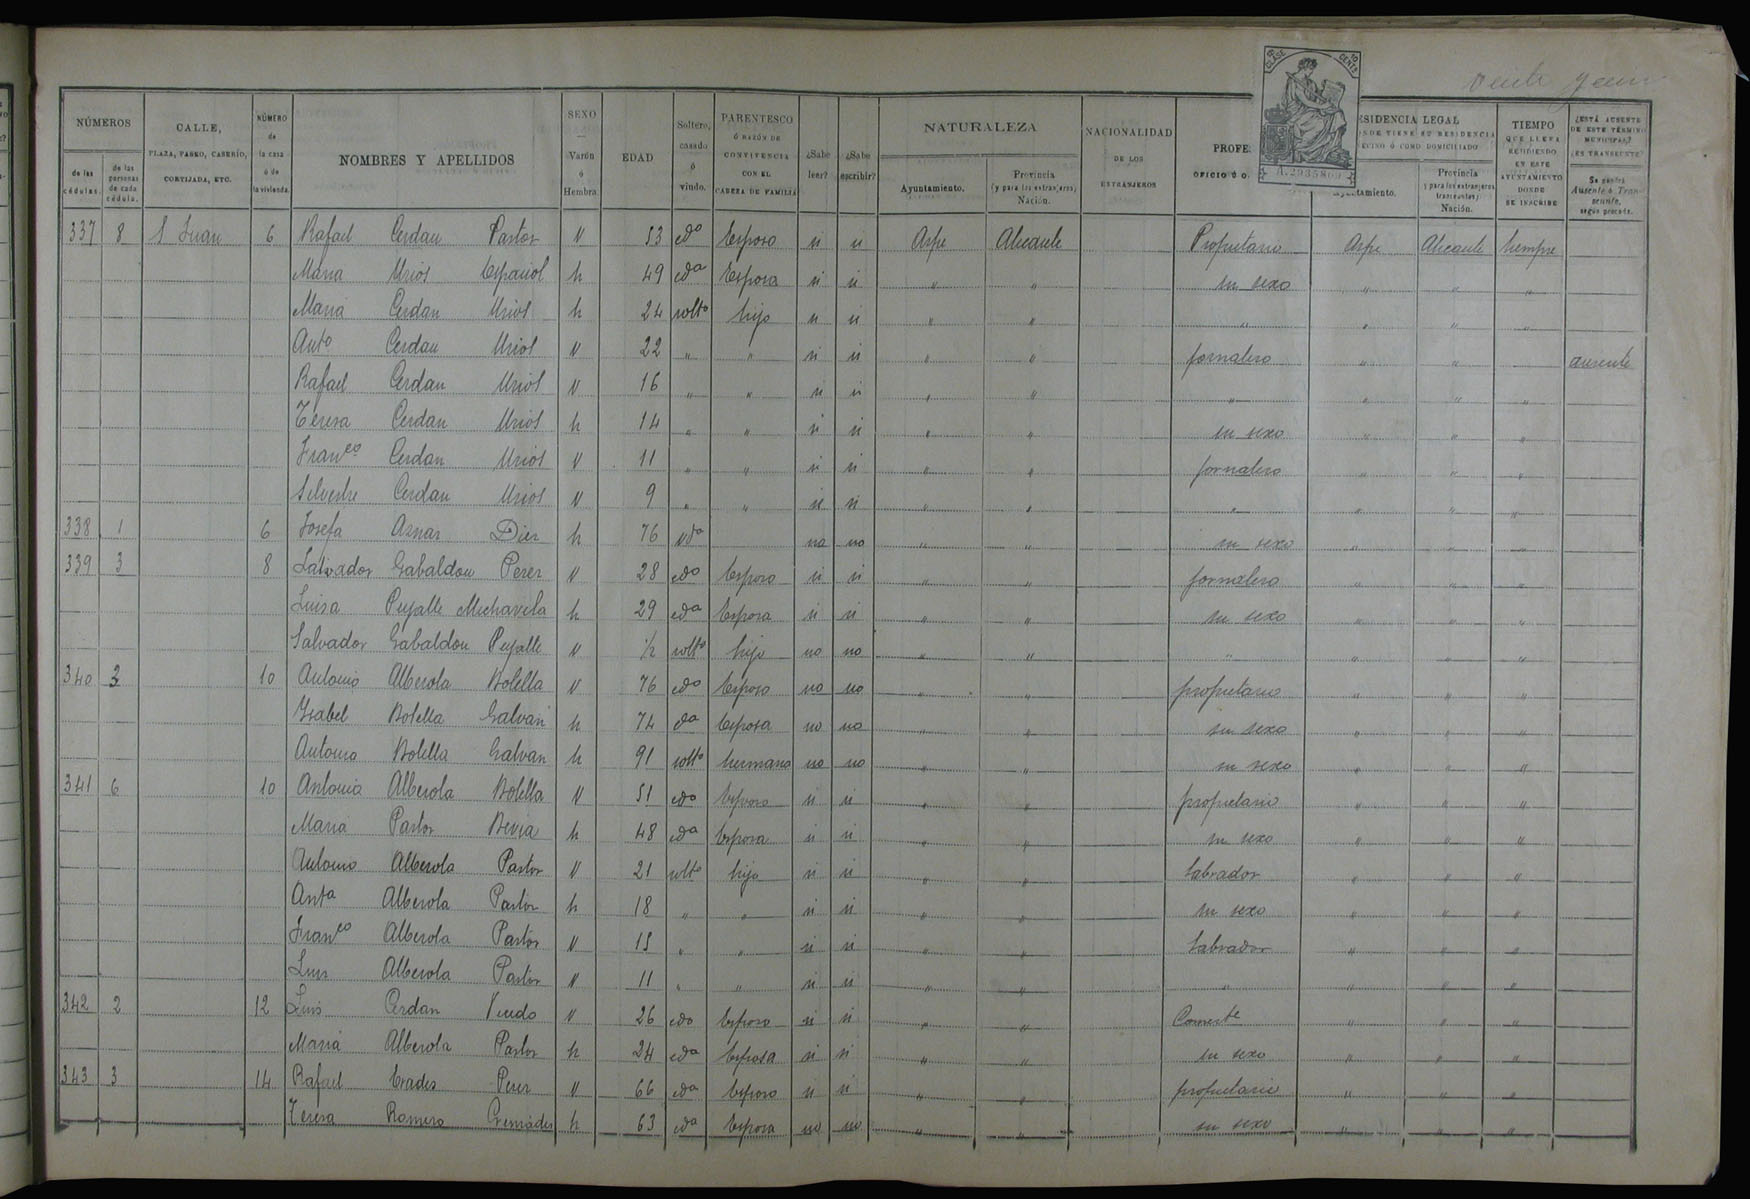 NÚMEROS
de las cédulas.
de las personas de cada cédula.
CALLE,
PLAZA, PASEO, CASERÍO,
CORTIJADA, ETC.
NÚMERO de la casa ó de la vivienda.
NOMBRES Y APELLIDOS
SEXO — Varón ó Hembra
EDAD
Soltero, casado ó viudo.
PARENTESCO
Ó RAZÓN DE CONVIVENCIA CON EL CABEZA DE FAMILIA
¿Sabe leer?
¿Sabe escribir?
NATURALEZA
Ayuntamiento.
Provincia (y para los extranjeros) Nación.
NACIONALIDAD DE LOS EXTRANJEROS
PROFE
OFICIO Ó O
ESIDENCIA LEGAL
ONDE TIENE SU RESIDENCIA
ECINO Ó COMO DOMICILIADO
yuntamiento.
Provincia y para los extranjeros transeuntes) Nación.
TIEMPO
QUE LLEVA RESIDIENDO EN ESTE AYUNTAMIENTO DONDE SE INSCRIBE
¿ESTÁ AUSENTE DE ESTE TÉRMINO MUNICIPAL? ¿ES TRANSEUNTE?
Se pondrá Ausente ó Transeunte, según proceda.
CLASE
10 CENTS
337 8 S Juan 6 Rafael Cerdan Pastor V 53 cdo Esposo si si Aspe Alicante Propietario Aspe Alicante Siempre
Maria Urios Español h 49 cda Esposa si si " " su sexo " " "
Maria Cerdan Uriol h 24 solto hijo si si " " " " " "
Anto Cerdan Uriol V 22 " " si si " " jornalero " " ausente
Rafael Cerdan Uriol V 16 " " si si " " " " " "
Teresa Cerdan Uriol h 14 " " si si " " su sexo " " "
Franco Cerdan Uriol V 11 " " si si " " jornalero " " "
Silvestre Cerdan Uriol V 9 " " si si " " " " " "
338 1 6 Josefa Aznar Dier h 76 vda no no " " su sexo " " "
339 3 8 Salvador Gabaldon Perer V 28 cdo Esposo si si " " jornalero " " "
Luisa Pujalte Michavila h 29 cda Esposa si si " " su sexo " " "
Salvador Gabaldon Pujalte V 1/2 solto hijo no no " " " " " "
340 3 10 Antonio Alberola Botella V 76 cdo Esposo no no " " propietario " " "
Ysabel Botella Galvan h 74 cda Esposa no no " " su sexo " " "
Antonia Botella Galvan h 91 solto hermana no no " " su sexo " " "
341 6 10 Antonio Alberola Botella V 51 cdo Esposo si si " " propietario " " "
Maria Pastor Bevia h 48 cda Esposa si si " " su sexo " " "
Antonio Alberola Pastor V 21 solto hijo si si " " Labrador " " "
Anta Alberola Pastor h 18 " " si si " " su sexo " " "
Franco Alberola Pastor V 15 " " si si " " Labrador " " "
Luis Alberola Pastor V 11 " " si si " " " " " "
342 2 12 Luis Cerdan V 26 cdo Esposo si si " " Comerte " " "
Maria Alberola Pastor h 24 cda Esposa si si " " su sexo " " "
343 3 14 Rafael Erades Perer V 66 cda Esposo si si " " propietario " " "
Teresa Romero Cremades h 63 cda Esposa no no " " su sexo " " "